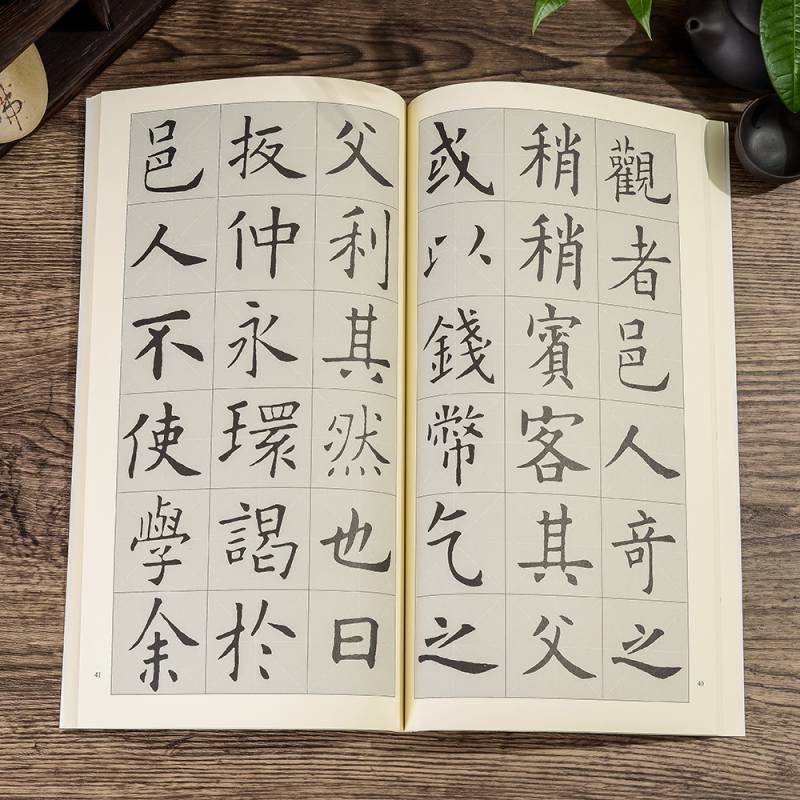 觀者邑人奇之
稍稍賓客其父
或以錢幣乞之
40
父利其然也曰
扳仲永環謁於
邑人不使學余
41